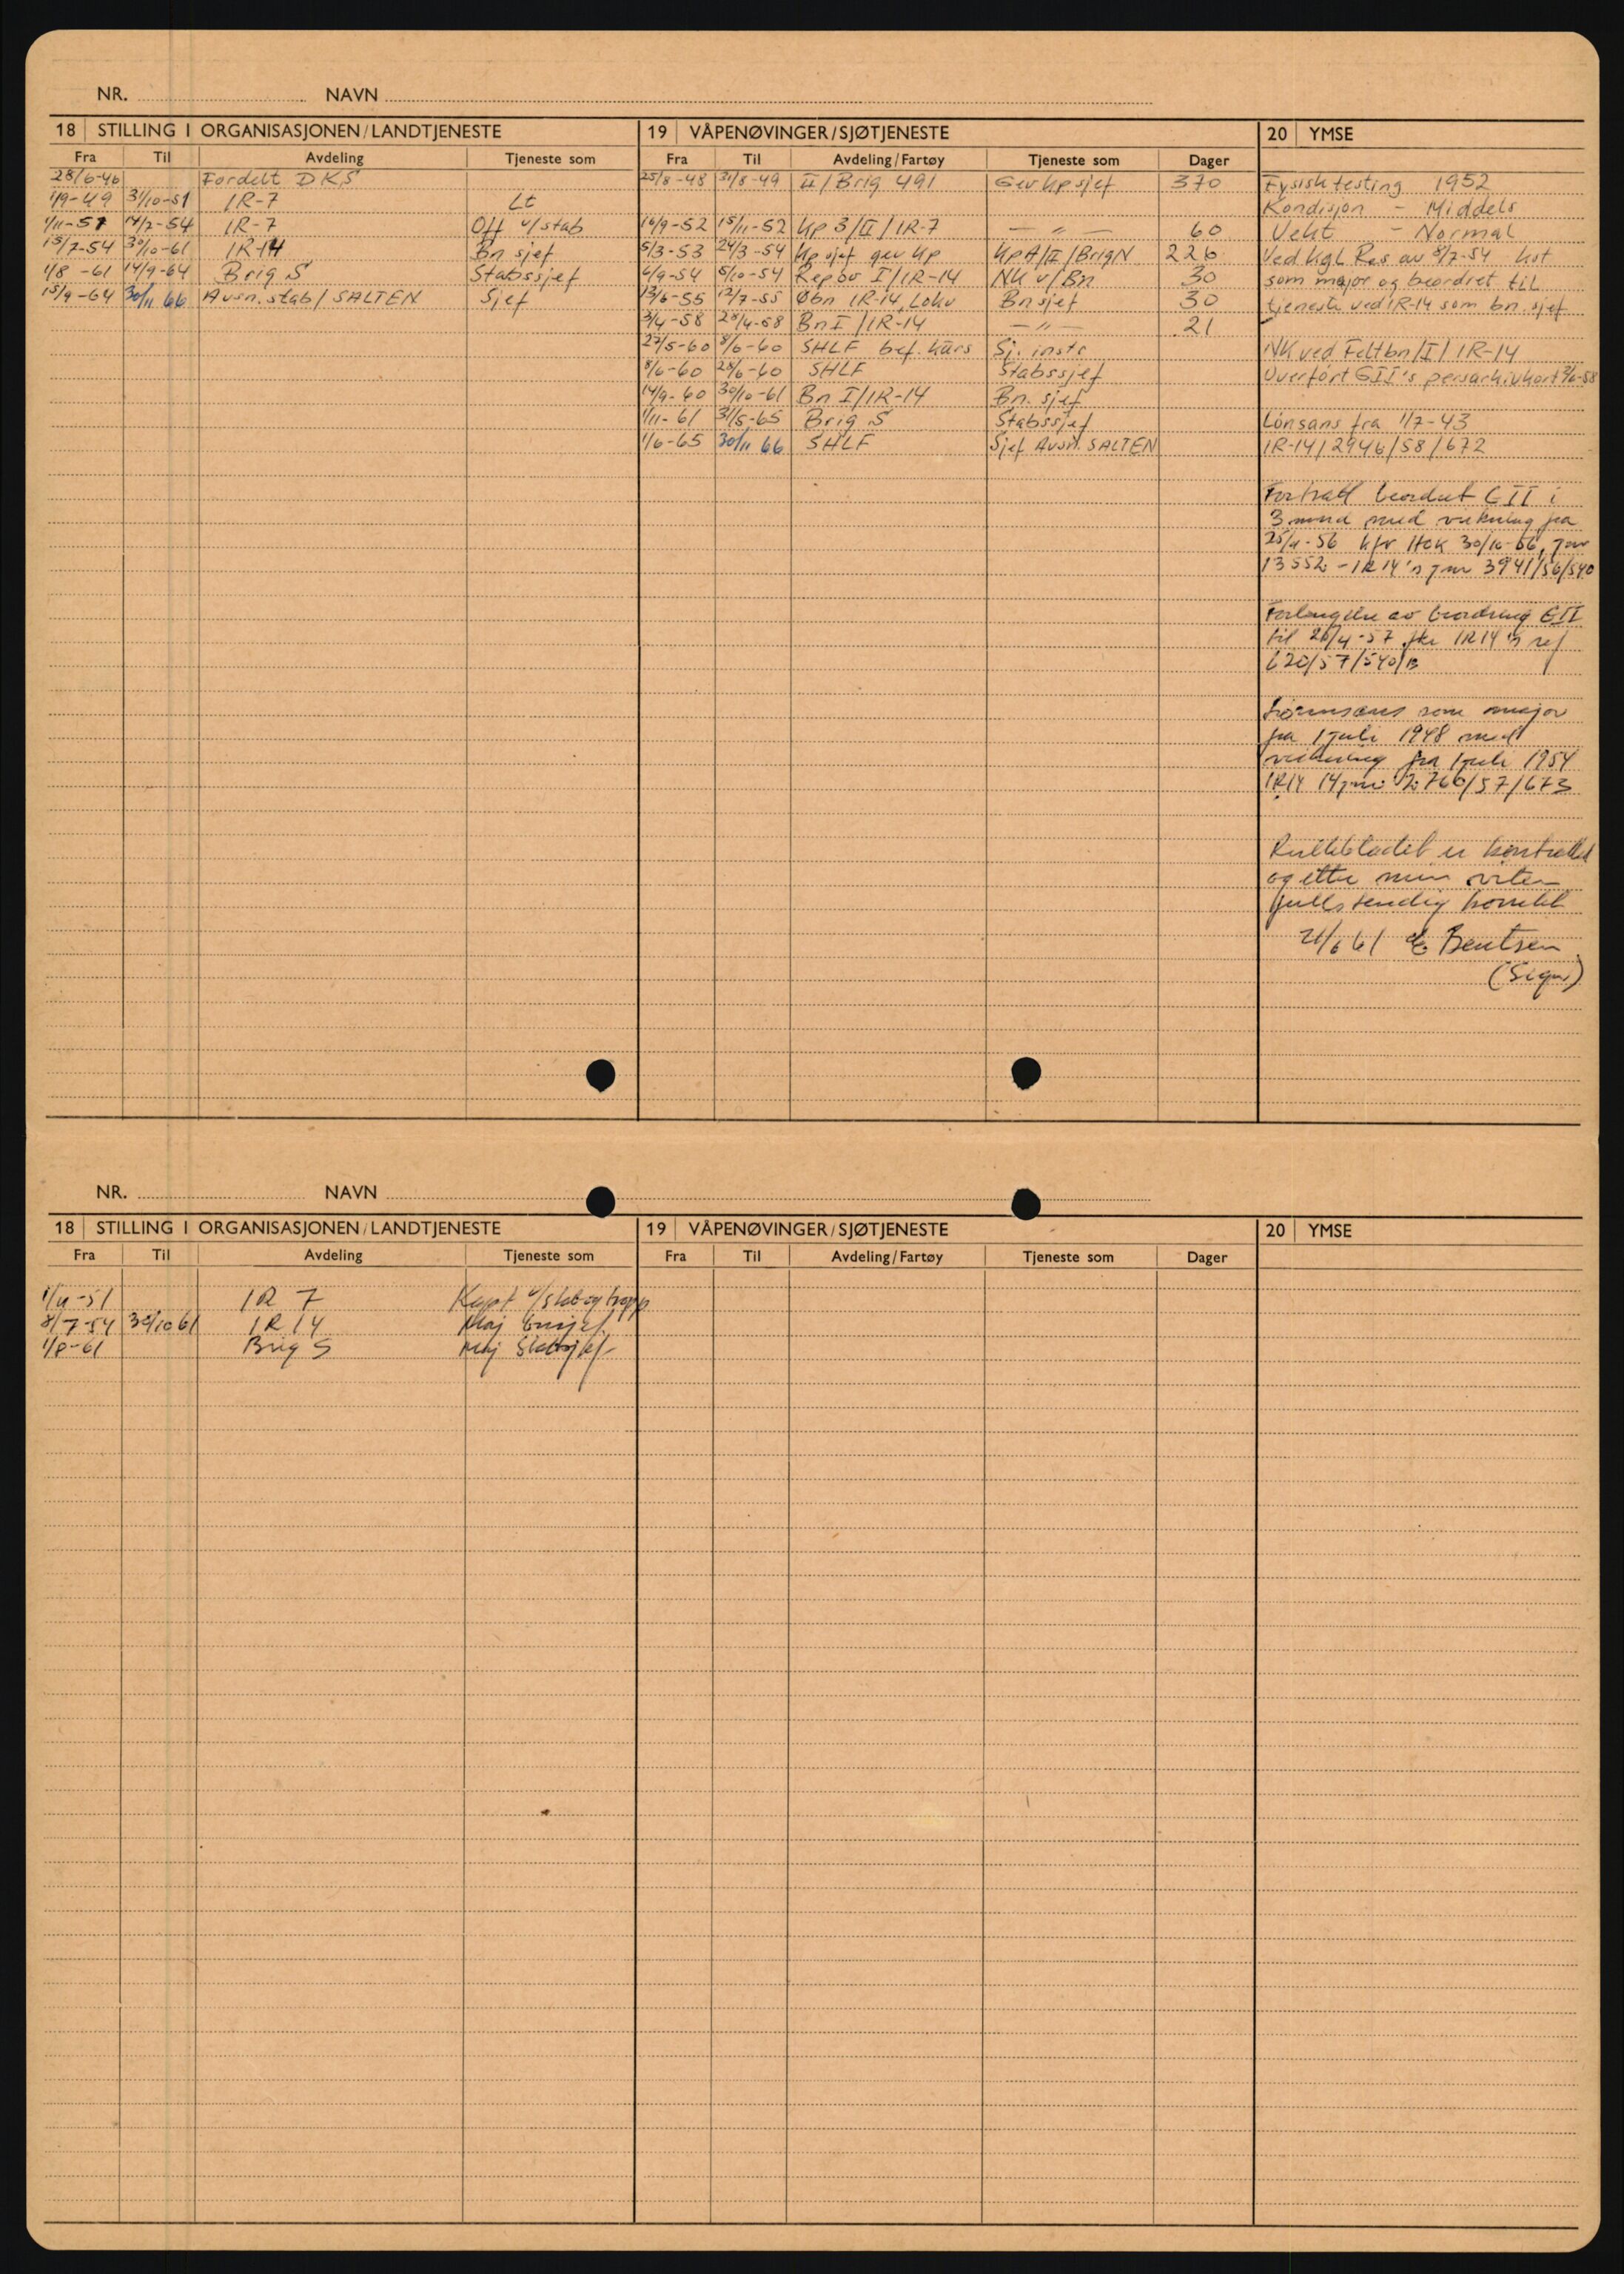 NR. NAVN
18 STILLING I ORGANISASJONEN/LANDTJENESTE 19 VÅPENØVINGER/SJØTJENESTE 20 YMSE
Fra Til Avdeling Tjeneste som Fra Til Avdeling/Fartøy Tjeneste som Dager
28/6-46 Fordelt DKS 25/8-48 31/8-49 II/Brig 491 Gevkpsjef 370 Fysisk testing 1952
1/9-49 31/10-51 IR-7 Lt Kondisjon - Middels
1/11-51 14/7-54 IR-7 Off v/stab 16/9-52 15/11-52 Kp 3/II/IR-7 — " — 60 Vekt - Normal
15/7-54 30/10-61 IR-14 Bn sjef 5/3-53 24/3-54 Kp sjef gev Kp KpA/II/BrigN 226 Ved Kgl. Res av 8/7-54 kst
1/8-61 14/9-64 Brig S Stabssjef 6/9-54 5/10-54 Repøv I/IR-14 NK v/Bn 30 som major og beordret til
15/9-64 30/11 66 Avsn.stab/SALTEN Sjef 13/6-55 12/7-55 Øbn IR-14, Lokv Bnsjef 30 tjeneste ved IR-14 som bn.sjef
3/4-58 23/4-58 Bn I/IR-14 — " — 21
27/5-60 8/6-60 SHLF bef. kurs Sj. instr NK ved Feltbn/I/IR-14
8/6-60 28/6-60 SHLF Stabssjef Overført GII's persarkivkort 3/6-58
14/9-60 30/10-61 Bn I/IR-14 Bn. sjef
1/11-61 31/5-65 Brig S Stabssjef Lønsans fra 1/7-43
1/6-65 30/11 66 SHLF Sjef Avsn. SALTEN IR-14/2946/58/672
Fortsatt beordret GII i
3 mnd med virkning fra
25/11-56 kfr HOK 30/10-56, jnr
13552 - IR14's jnr 3941/56/540
Forlengelse av beordring GII
til 26/4-57 jfr IR14's ref
620/57/540/B
Lønnsans som major
fra 1 juli 1948 med
virkning fra 1 juli 1954
IR14 14 jnr 2760/57/673
Rullebladet er kontrollert
og etter min viten
fullstendig korrekt
21/6 61 E Bentsen
(Sign)
NR. NAVN
18 STILLING I ORGANISASJONEN/LANDTJENESTE 19 VÅPENØVINGER/SJØTJENESTE 20 YMSE
Fra Til Avdeling Tjeneste som Fra Til Avdeling/Fartøy Tjeneste som Dager
1/11-51 IR 7 Kapt v/stab og tropp
8/7-54 30/10 61 IR 14 Maj bnsjef
1/8-61 Brig S Maj Stabssjef